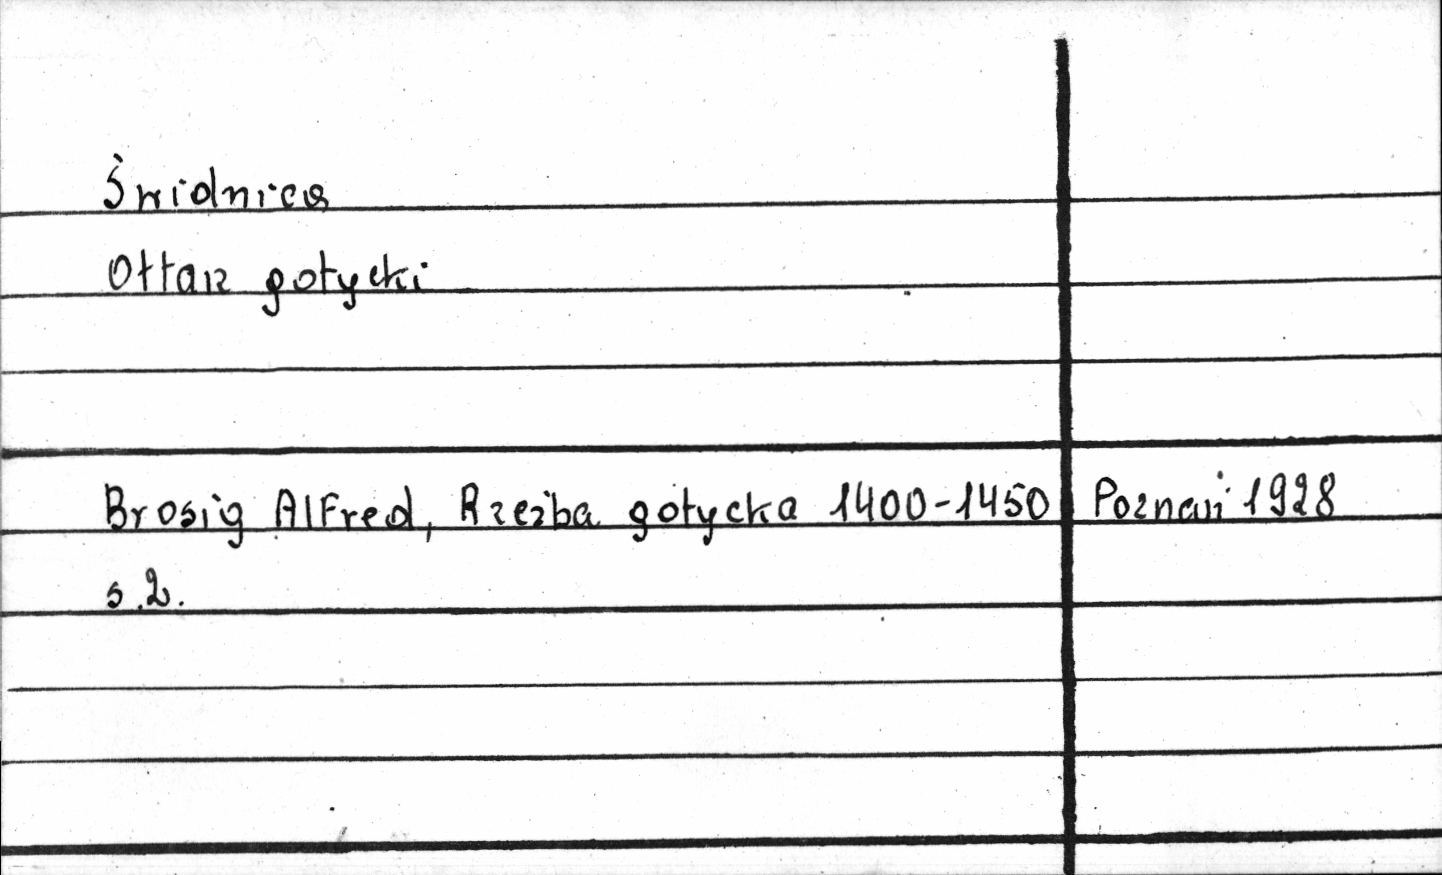 Świdnica
Ołtarz gotycki
Brosig Alfred, Rzeźba gotycka 1400-1450 Poznań 1928
s.2.